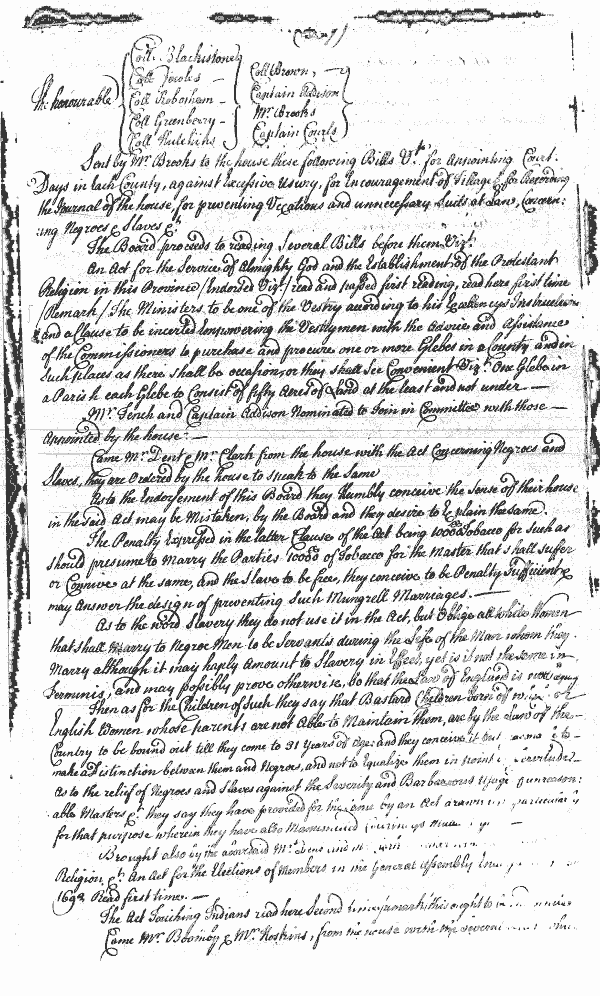 Coll. Blackistone
Coll Jowles
Coll Robotham
Coll Greenberry
Coll Hutchins
The honourable
Coll Brown,
Captain Addison
Mr. Brooks
Captain Courts
Sent by Mr. Brooks to the house these following Bills Vizt. for Appointing Court.
Days in Each County, against Excessive Usury, for Encouragement of Villages for Recording
the Journal of the house, for preventing Vexations and unnecessary Suits at Law, Concern:
:ing Negroes & Slaves &c.
The Board proceeds to reading several Bills before them Vizt.
An Act for the Service of Almighty God and the Establishment of the Protestant
Religion in this Province /Endorsed Vizt./ read and passed first reading, read here first time
Remark / The Ministers to be one of the Vestry according to his Excellencys Instructions
and a Clause to be incerted Impowering the Vestrymen with the Advice and Assistance
of the Commissioners to purchase and procure one or more Glebes in a County and in
Such places as there shall be occasion, or they shall See Convenient Vizt. One Glebe in
a Parish each Glebe to Consist of fifty Acres of Land at the least and not under —
Mr. Tench and Captain Addison Nominated to Join in Committee with those —
Appointed by the house: —
Came Mr. Dent & Mr. Clark from the house with the Act Concerning Negroes and
Slaves, they are Ordered by the house to speak to the Same
As to the Endorsement of this Board they Humbly conceive the Sense of their house
in the said Act may be Mistaken, by the Board and they desire to Explain the Same.
The Penalty Expressed in the latter Clause of the Act being Tobacco for Such as
should presume to Marry the Parties of Tobacco for the Master that shall suffer
or Connive at the same, and the Slave to be free, they conceive to be Penalty Sufficient &
may Answer the design of preventing Such Mungrell Marriages. —
As to the word Slavery they do not use it in the Act, but Oblige all white Women
that shall Marry to Negroe Men to be Servants during the Life of the Man whom they
Marry although it may haply Amount to Slavery in Effect, yet is it not the same in
Terminis, and may possibly prove otherwise, So that the Law of England is not
Then as for the Children of Such they say that Bastard Children born of
English Women whose parents are not Able to Maintain them, are by the Law of the
Country to be bound out till they come to 31 Years of Age: and they conceive it to
make a Distinction between them and Negroes, and not to Equalize them in point
As to the relief of Negroes and Slaves against the Severity and Barbarous Usage unreason:
:able Masters &c. they say they have provided for the same by an Act drawn particularly
for that purpose wherein they have also
Brought also by the aforesaid Mr. Dent and
Religion, &c. An Act for the Elections of Members in the General Assembly
1692 Read first time. —
The Act Touching Indians read here Second time this ought to
Came Mr. & Mr. Hoskins, from the house with the several